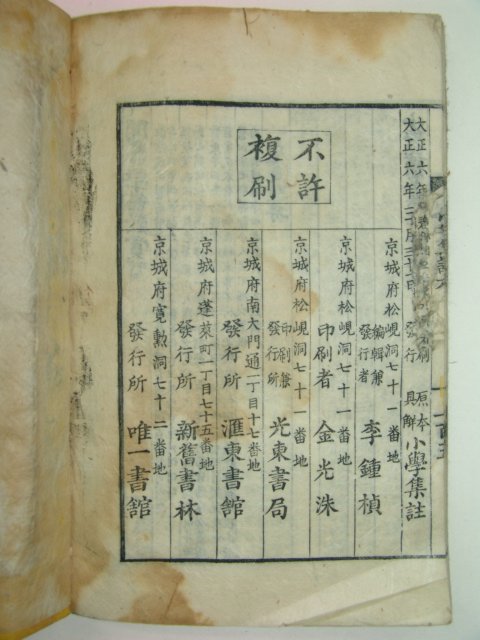 不許
複刷
大正六年
大正六年
發行
原本
具解
小學集註
京城府松峴洞七十一番地
編輯兼
發行者
李鍾楨
京城府松峴洞七十一番地
印刷者
金光洙
京城府松峴洞七十一番地
印刷兼
發行所
光東書局
京城府南大門通一丁目十七番地
發行所
滙東書館
京城府蓬萊町一丁目七十五番地
發行所
新舊書林
京城府寬勳洞七十二番地
發行所
唯一書館